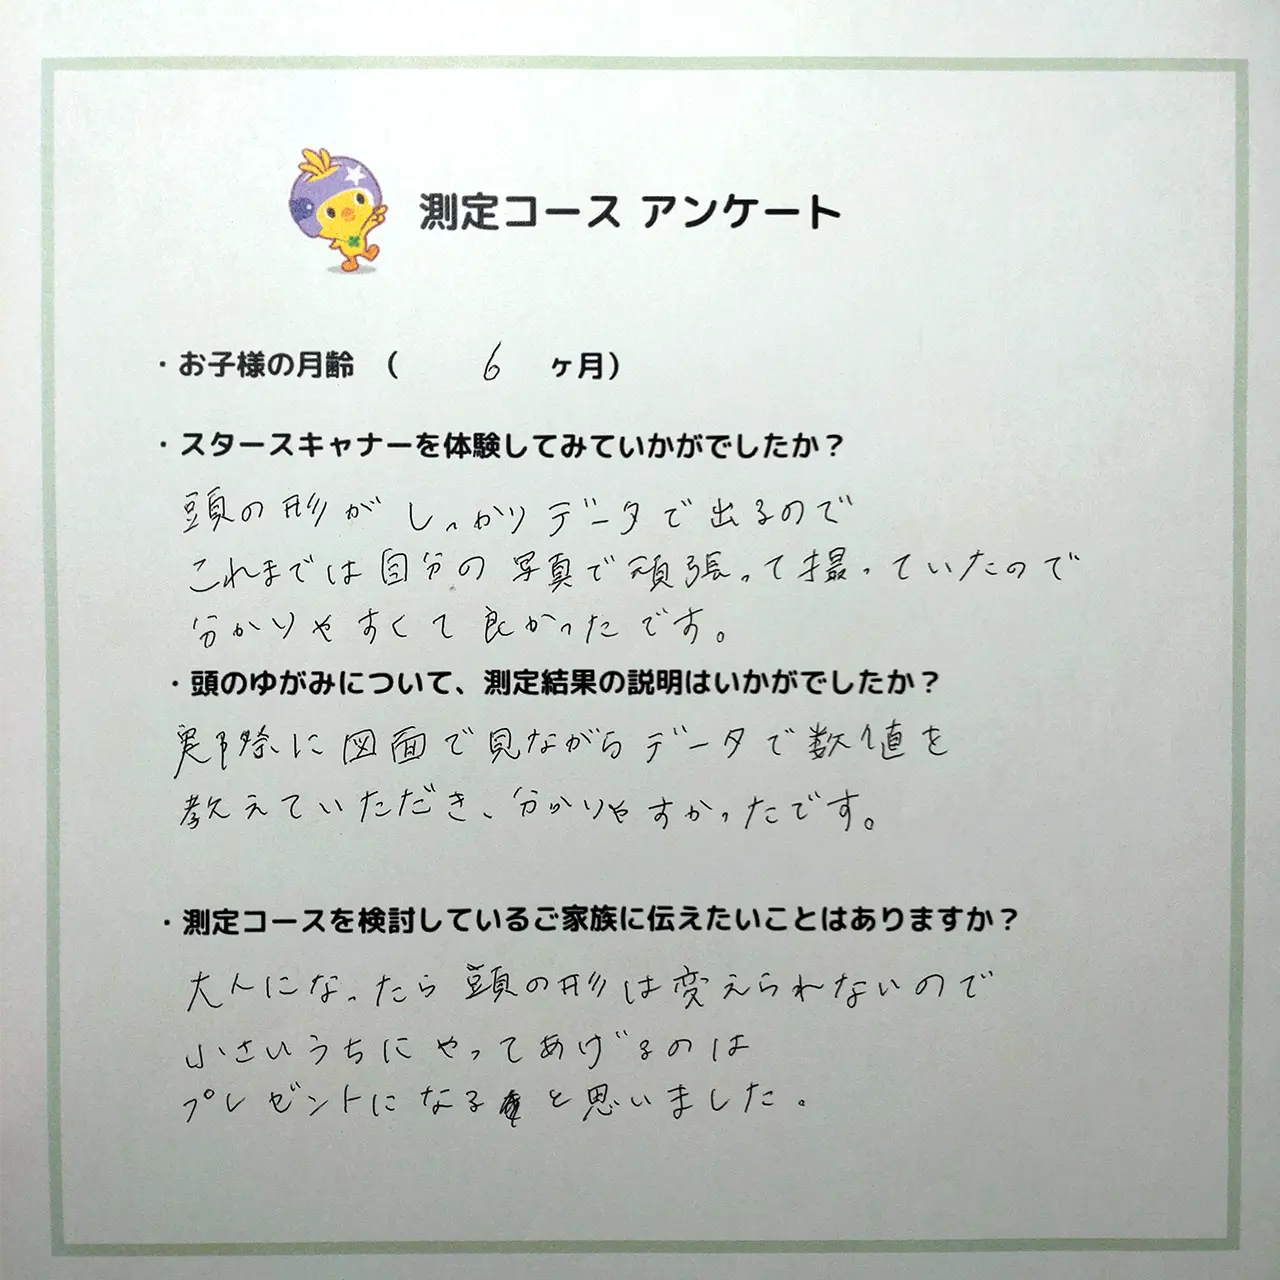 測定コース アンケート
・お子様の月齢 ( 6 ヶ月)
・スタースキャナーを体験してみていかがでしたか？
頭の形がしっかりデータで出るので
これまでは自分の写真で頑張って撮っていたので
分かりやすくて良かったです。
・頭のゆがみについて、測定結果の説明はいかがでしたか？
実際に図面で見ながらデータで数値を
教えていただき、分かりやすかったです。
・測定コースを検討しているご家族に伝えたいことはありますか？
大人になったら頭の形は変えられないので
小さいうちにやってあげるのは
プレゼントになると思いました。